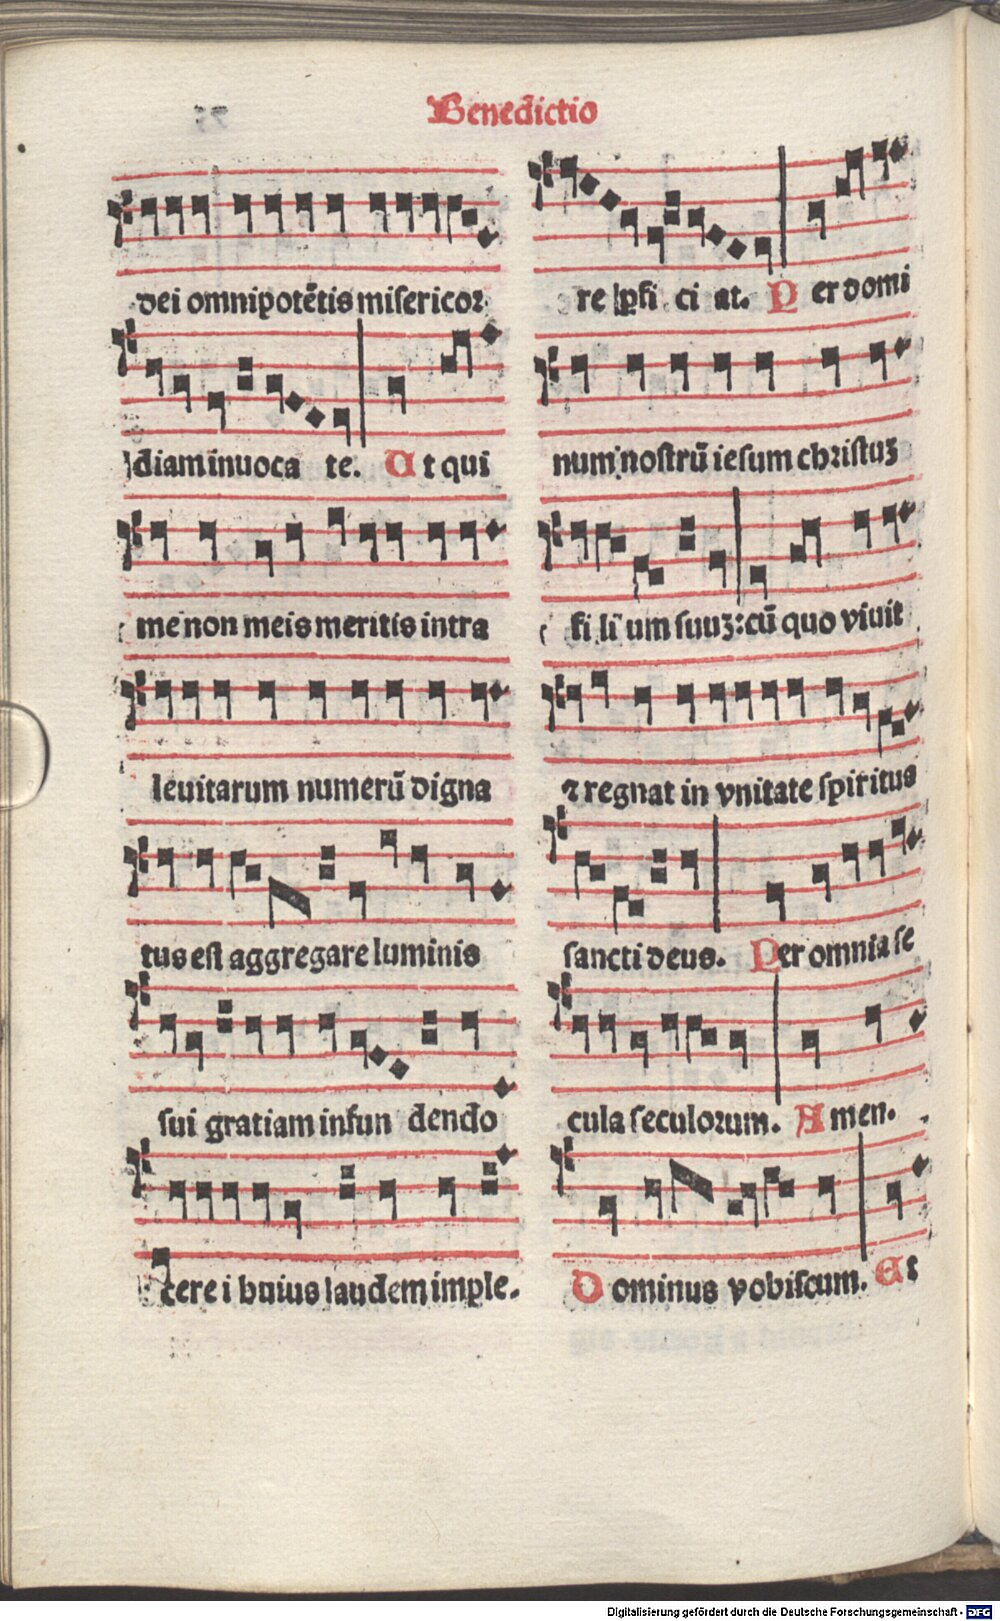 Benedictio
dei omnipotētis misericor
diam inuoca te. Ut qui
me non meis meritis intra
leuitarum numerū digna
tus est aggregare luminis
sui gratiam infun dendo
cere i huius laudem imple.
re ꝑfi ci at. Per domi
num nostrū iesum christuʒ
fi li um suuʒ: cū quo viuit
⁊ regnat in vnitate spiritus
sancti deus. Per omnia se
cula seculorum. Amen.
Dominus vobiscum. Et
Digitalisierung gefördert durch die Deutsche Forschungsgemeinschaft - DFG